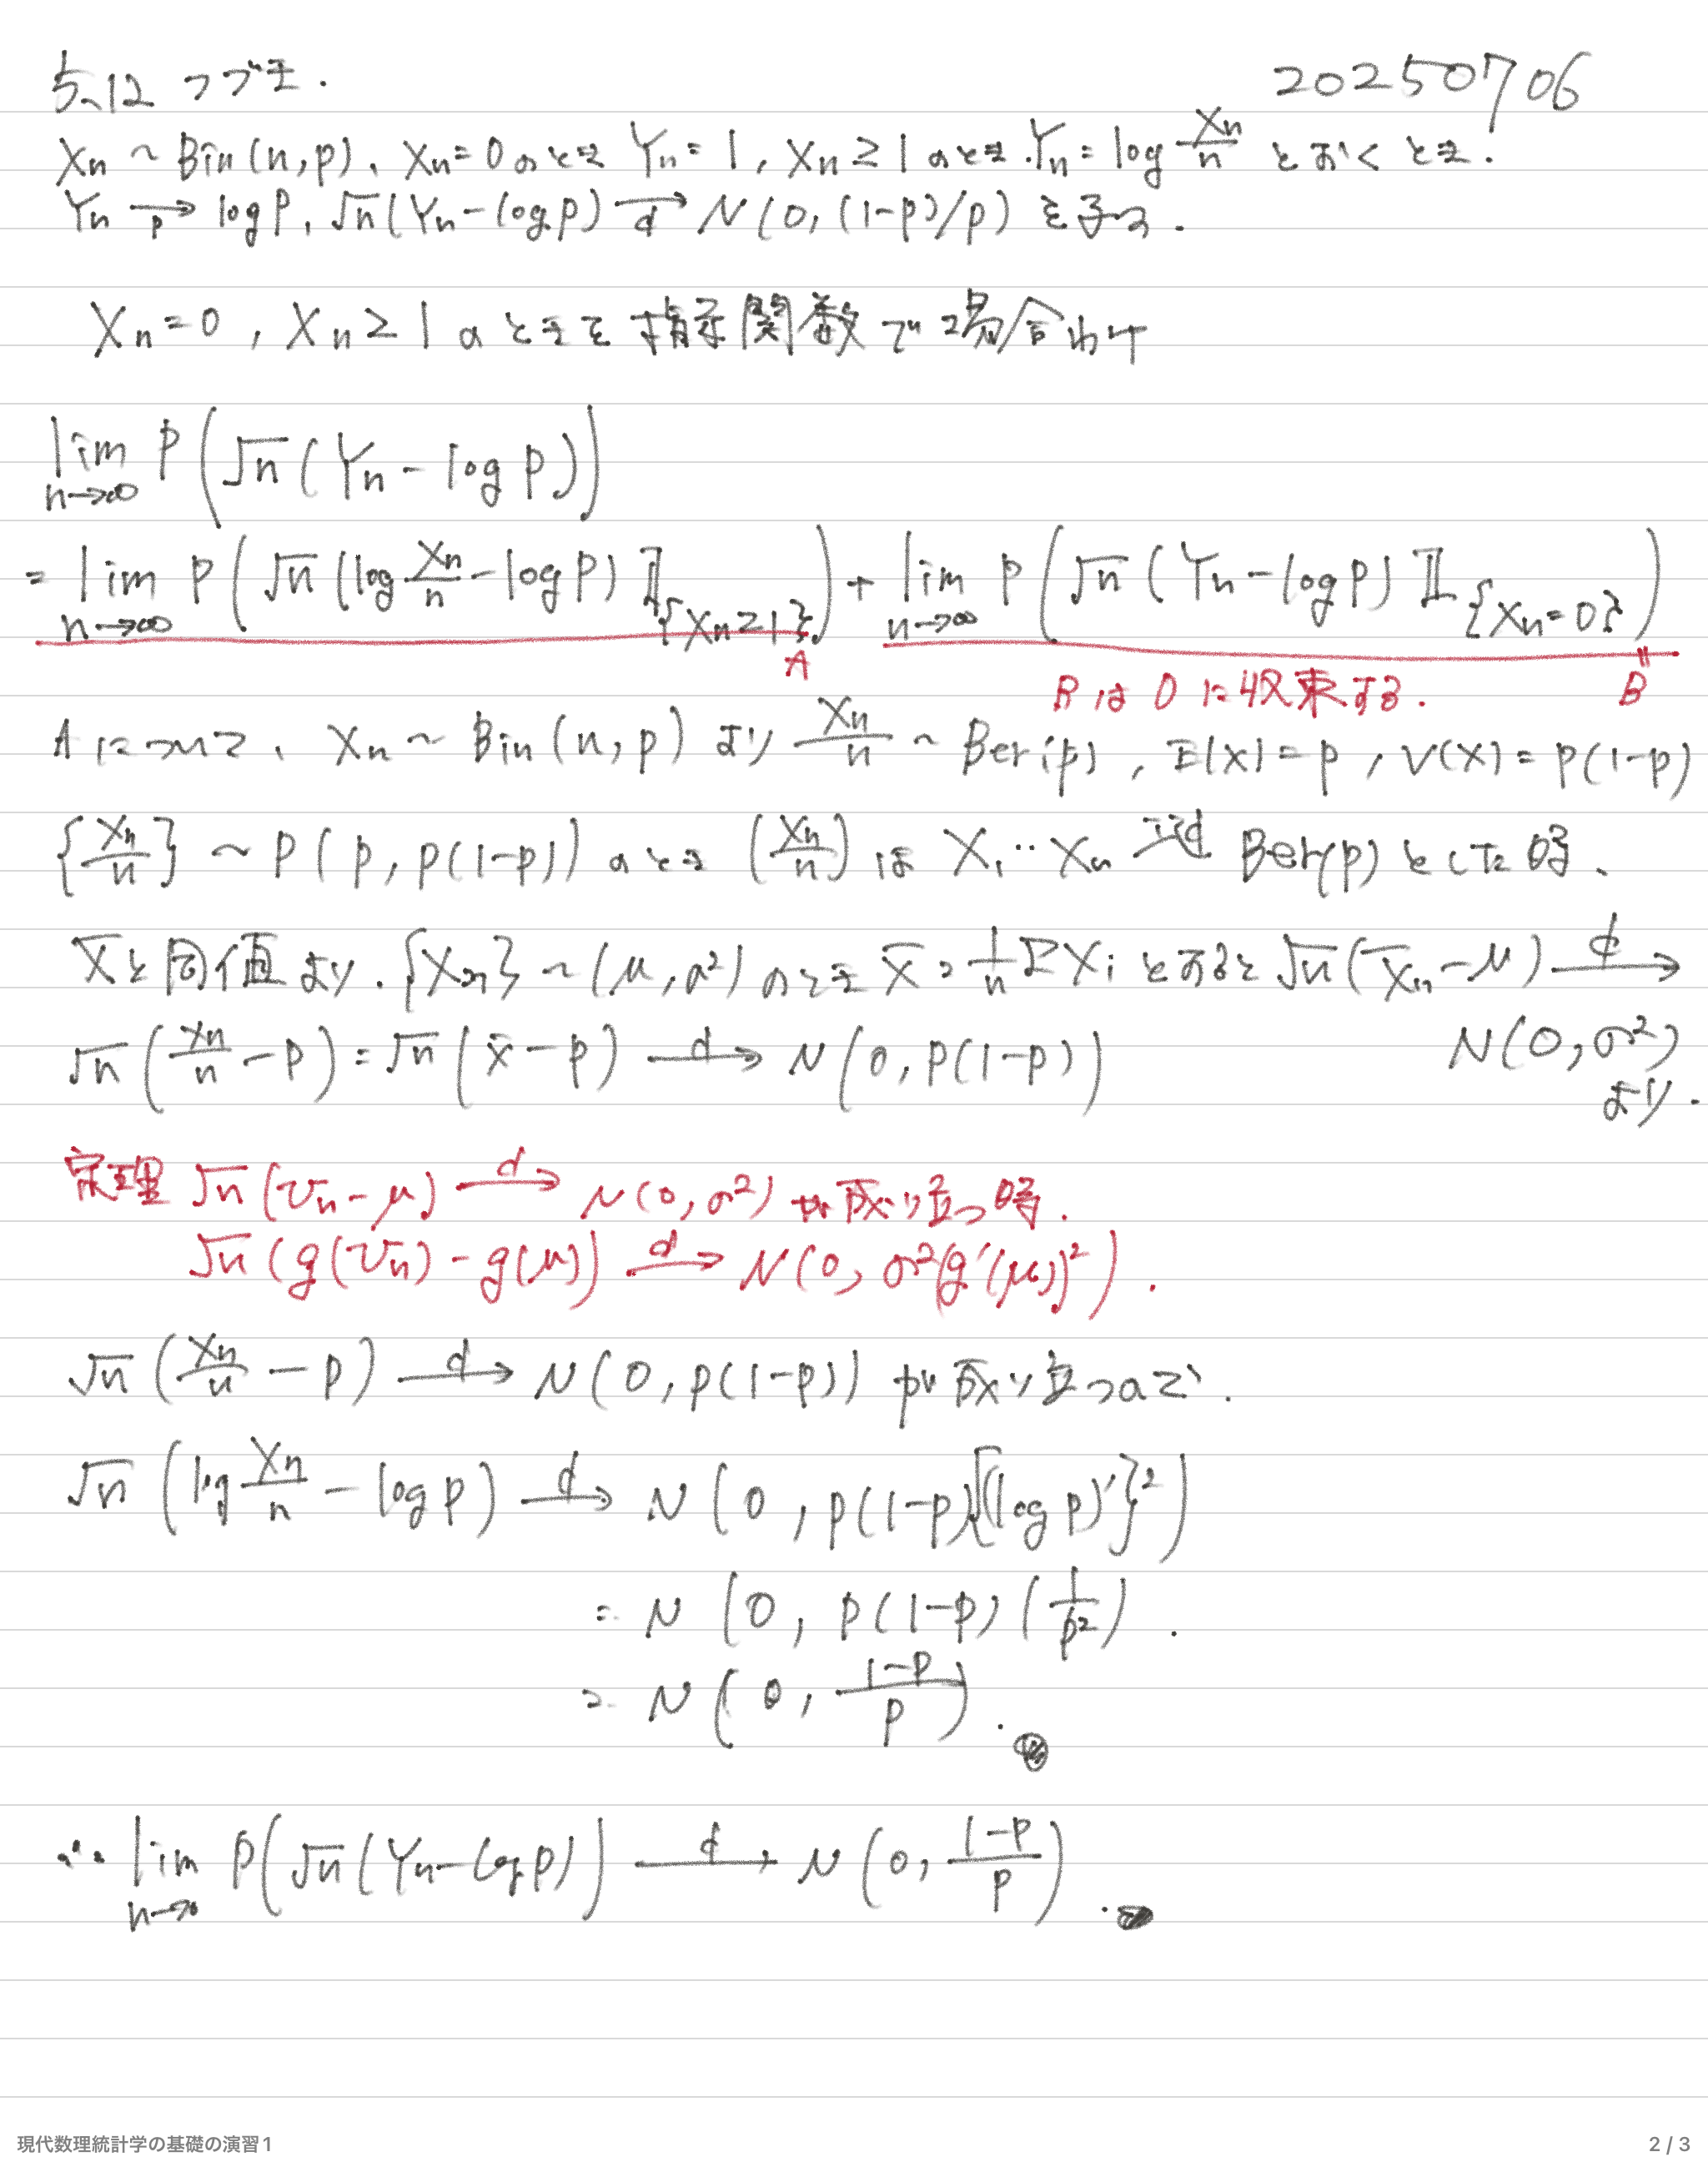 5.12 つづき. 20250706
Xn ~ Bin(n,p)、Xn=0のとき Yn=1, Xn≥1のとき.Yn=log Xn/n とおくとき.
Yn →p log p, √n(Yn-log p) →d N(0,(1-p)/p)を示る.
Xn=0, Xn≥1のときを指示関数で場合わけ
lim n→∞ P(√n(Yn-log p))
= lim n→∞ P(√n(log Xn/n - log p) 𝕀{Xn≥1}) + lim n→∞ P(√n(Yn-log p) 𝕀{Xn=0})
A
Bは0に収束する.
B
Aについて、Xn ~ Bin(n,p)より Xn/n ~ Ber(p), E(X)=p, V(X)=p(1-p)
{Xn/n} ~ P(p,p(1-p))のとき (Xn/n)は X1‥Xn iid Ber(p)とした時、
X̄と同値より.{Xn} ~ (μ,σ²)のとき X̄=1/n ΣXiとおると √n(X̄n-μ) →d
N(0,σ²)
より.
√n(Xn/n - p) = √n(x̄-p) →d N(0,p(1-p))
定理 √n(Un-μ) →d N(0,σ²)が成り立つ時.
√n(g(Un)-g(μ)) →d N(0,σ²(g′(μ))²).
√n(Xn/n - p) →d N(0,p(1-p))が成り立つので.
√n(log Xn/n - log p) →d N(0,p(1-p){(log p)′}²)
= N(0,p(1-p)(1/p²)).
= N(0,(1-p)/p).
∴ lim n→∞ P(√n(Yn-log p)) →d N(0,(1-p)/p).
現代数理統計学の基礎の演習1 2 / 3